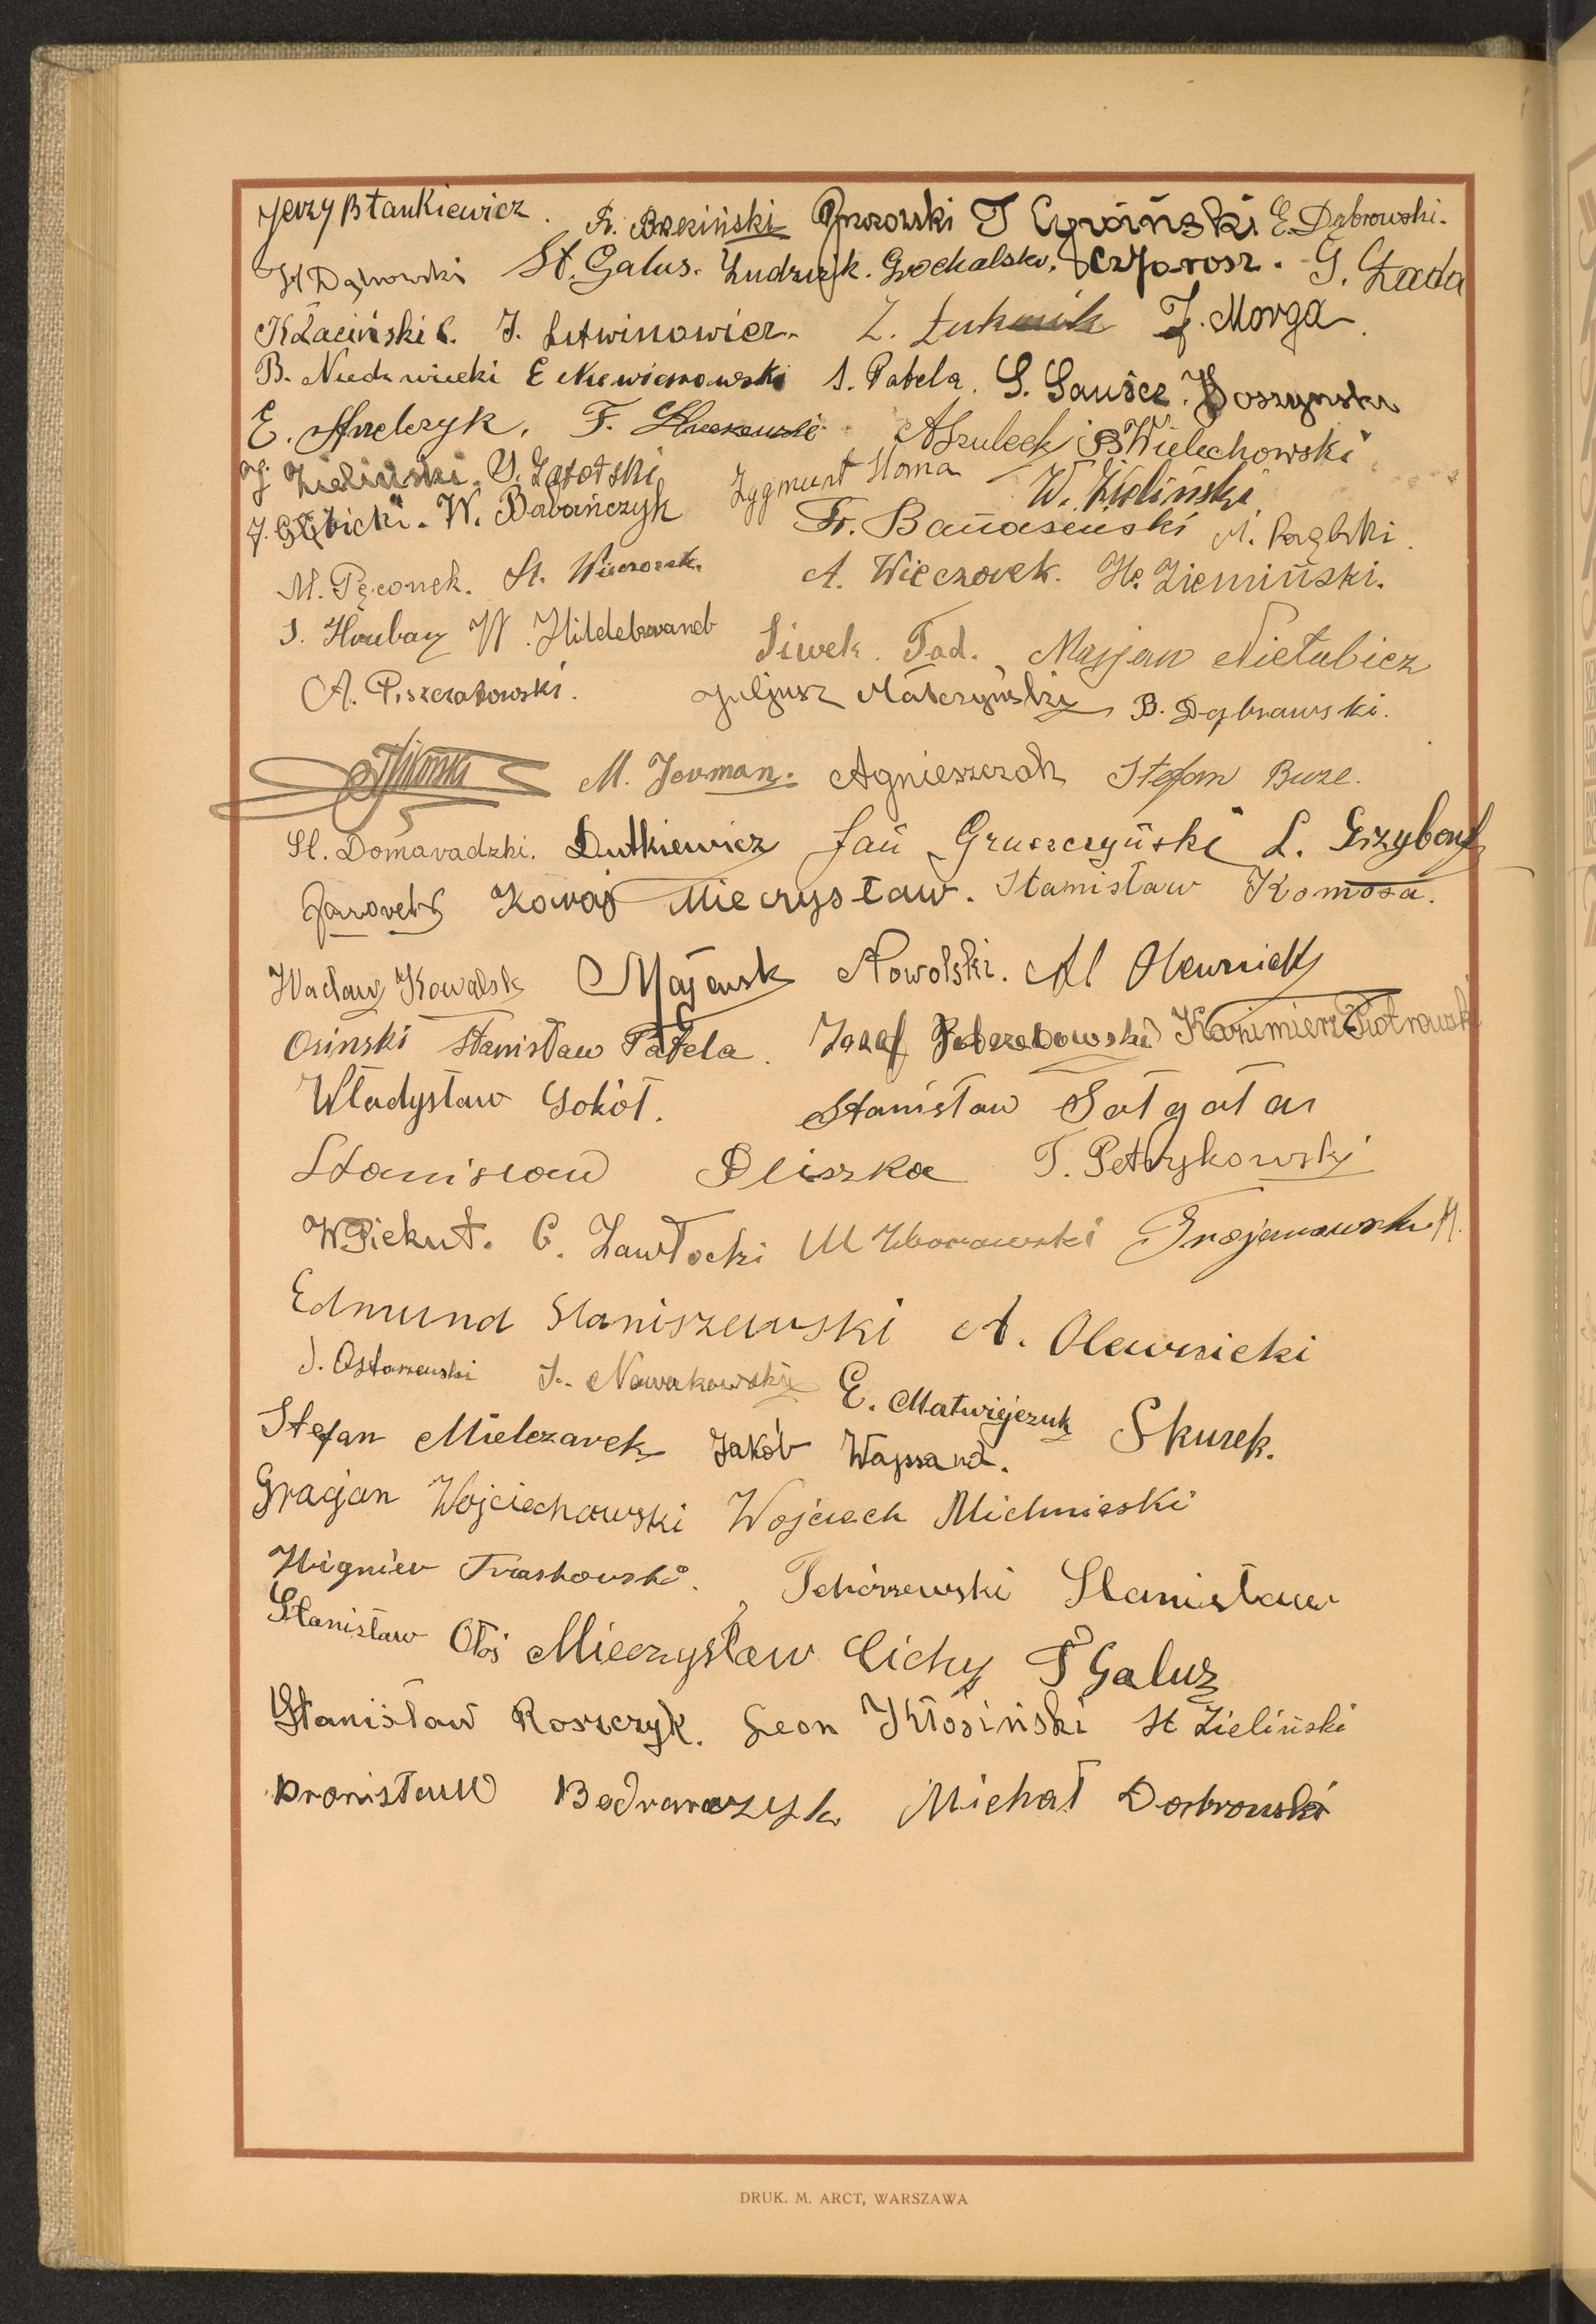 Jerzy Błankiewicz. R. Brzeziński T Cywiński E. Dąbrowski.
St Dąbrowski St. Galus. Ludzuk. Grochalski. Jarosz. G. Łada
K Łaciński J. Litwinowicz. Z. J. Morga.
B. Niedzwiecki E Niewiarowski S. Patela. S. Sansec.
E. F. A Szuleck B Wielechowski
J. Zieliński. Zygmunt Słoma W. Zieliński
J. Gębicki. W. Babańczyk Fr. Banaszeuski
M. Pęconek. St. Wieczorek. A. Wieczorek. He. Ziemiński.
S. Hildebrandt Siwek Tad. Marjan Nietubicz
A. Piszczatowski. Juljusz Matczyński B. Dąbrawski.
M. Jerman. Agnieszczak Stefan Buze.
St. Domaradzki. Dutkiewicz Jan Gruszczyński L. Grzybowski
Jarovek Kowaj Mieczysław. Stanisław Komosa.
Wacław Kowalsk Majewsk Nowolski. Al Olewnick
Osinski Stanisław Patela. Jozef Kazimierz Piotrowski
Władysław Sokół. Stanisław Sałgatar
Stanisław Pliszka T. Petrykowski
W Piekut. C. Zawłocki M Trojanowski H.
Edmund Staniszewski A. Olewnicki
J. Ostaszewski J. Nowakowski E. Matwiejczuk Skurek.
Stefan Mielczarek Jakób Wajssand.
Gracjan Wojciechowski Wojciech Michnieski
Zbigniew Traskowski. Tchórzewski Stanisław
Stanisław Ołoś Mieczysław Cichy P Galus
Stanisław Roszczyk. Leon Kłosiński St Zieliński
Bronisław Bednarczyk Michał Dąbrowski
DRUK. M. ARCT, WARSZAWA